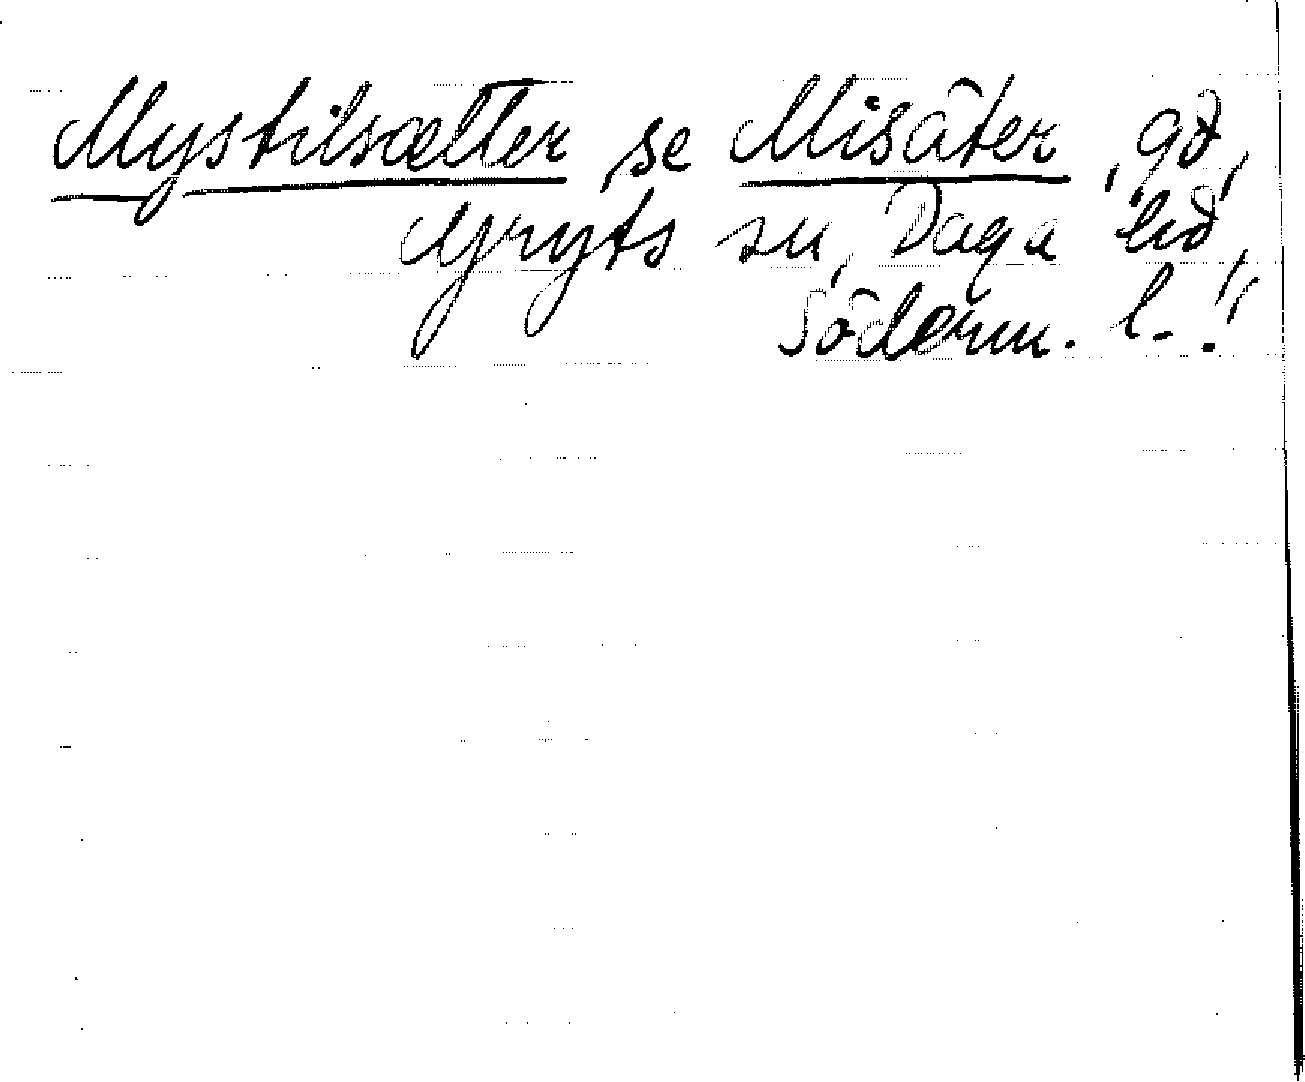 Mystilsætter, se Misäter, gd,
Gryts sn, Daga hd,
Söderm. l.!